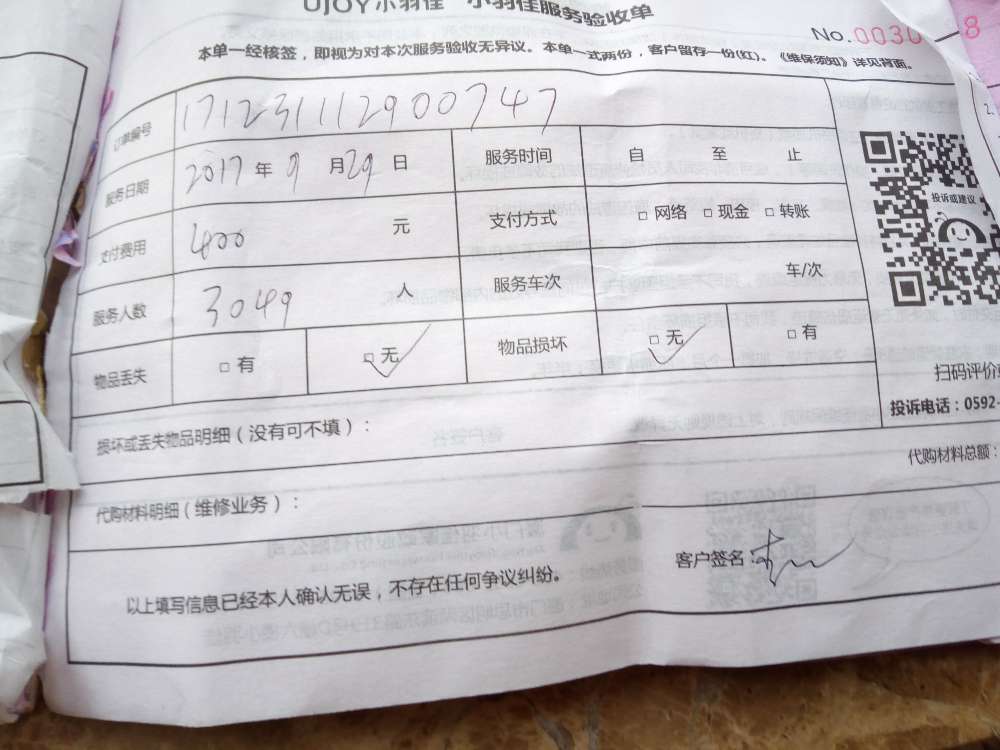 UJOY小羽佳 小羽佳服务验收单
No.0030
8
本单一经核签，即视为对本次服务验收无异议。本单一式两份，客户留存一份(红)。《维保须知》详见背面。
订单编号 171231112900747
服务日期 2017 年 9 月 29 日 服务时间 自 至 止
支付费用 400 元 支付方式 □ 网络 □ 现金 □ 转账
服务人数 3049 人 服务车次 车/次
物品丢失 □ 有 □ 无 物品损坏 □ 无 □ 有
投诉或建议
扫码评价
投诉电话：0592-
损坏或丢失物品明细（没有可不填）：
代购材料明细（维修业务）：
代购材料总额：
以上填写信息已经本人确认无误，不存在任何争议纠纷。
客户签名：